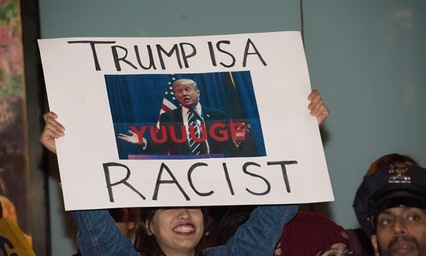 TRUMP IS A
YUUUGE
RACIST